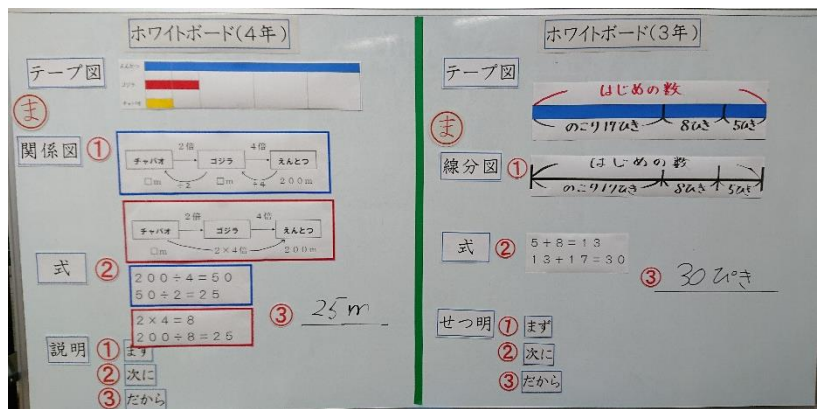 ホワイトボード(4年)
テープ図
えんとつ
ゴジラ
チャパオ
ま
関係図 ①
2倍 4倍
チャパオ ゴジラ えんとつ
□m ÷2 □m ÷4 200m
2倍 4倍
チャパオ ゴジラ えんとつ
□m 2×4倍 200m
式 ②
200÷4=50
50÷2=25
2×4=8
200÷8=25
③ 25m
説明 ① まず
② 次に
③ だから
ホワイトボード(3年)
テープ図
はじめの数
のこり17ひき 8ひき 5ひき
ま
線分図 ①
はじめの数
のこり17ひき 8ひき 5ひき
式 ②
5+8=13
13+17=30
③ 30ぴき
せつ明 ① まず
② 次に
③ だから